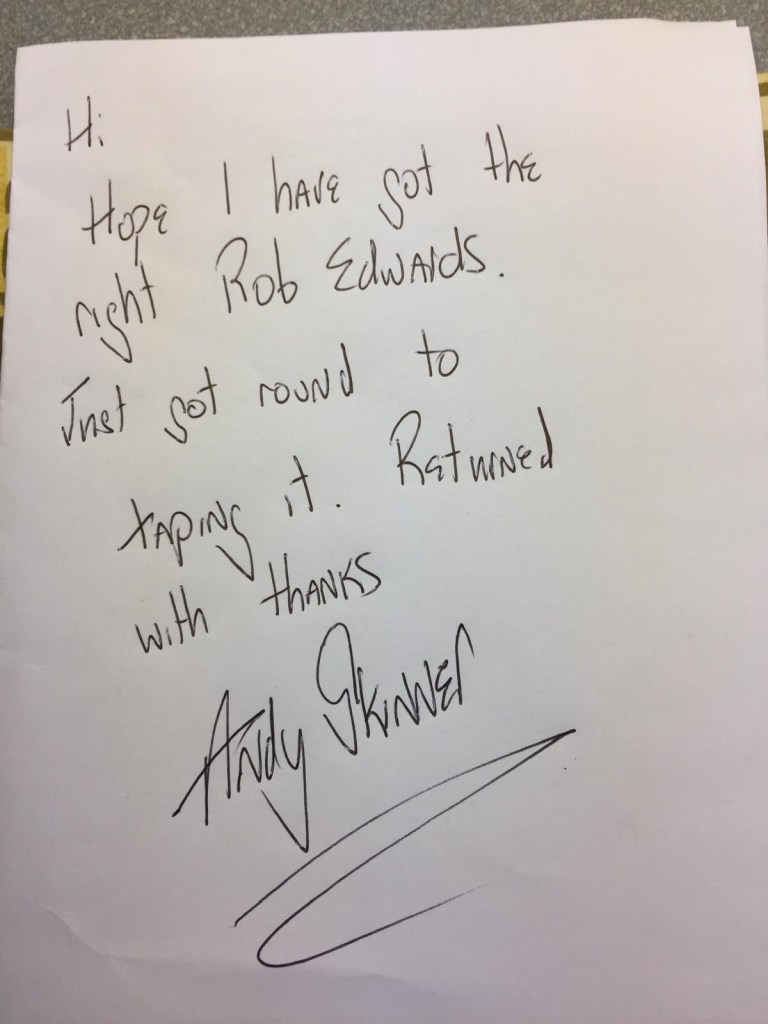 Hi
Hope I have got the
right Rob Edwards.
Just got round to
taping it. Returned
with thanks
Andy Skinner